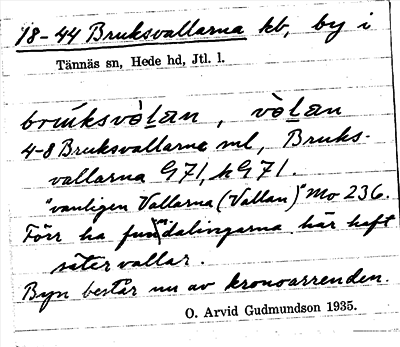 18-44 Bruksvallarna kb, by i
Tännäs sn, Hede hd, Jtl. l.
brúksvàlan, vàlan
4-8 Bruksvallarne ml, Bruks-
vallarna G71, hG71.
"vanligen Vallarna (Vallan)" Mo 236.
Förr ha funädalingarna här haft
sätervallar.
Byn består nu av kronoarrenden.
O. Arvid Gudmundson 1935.